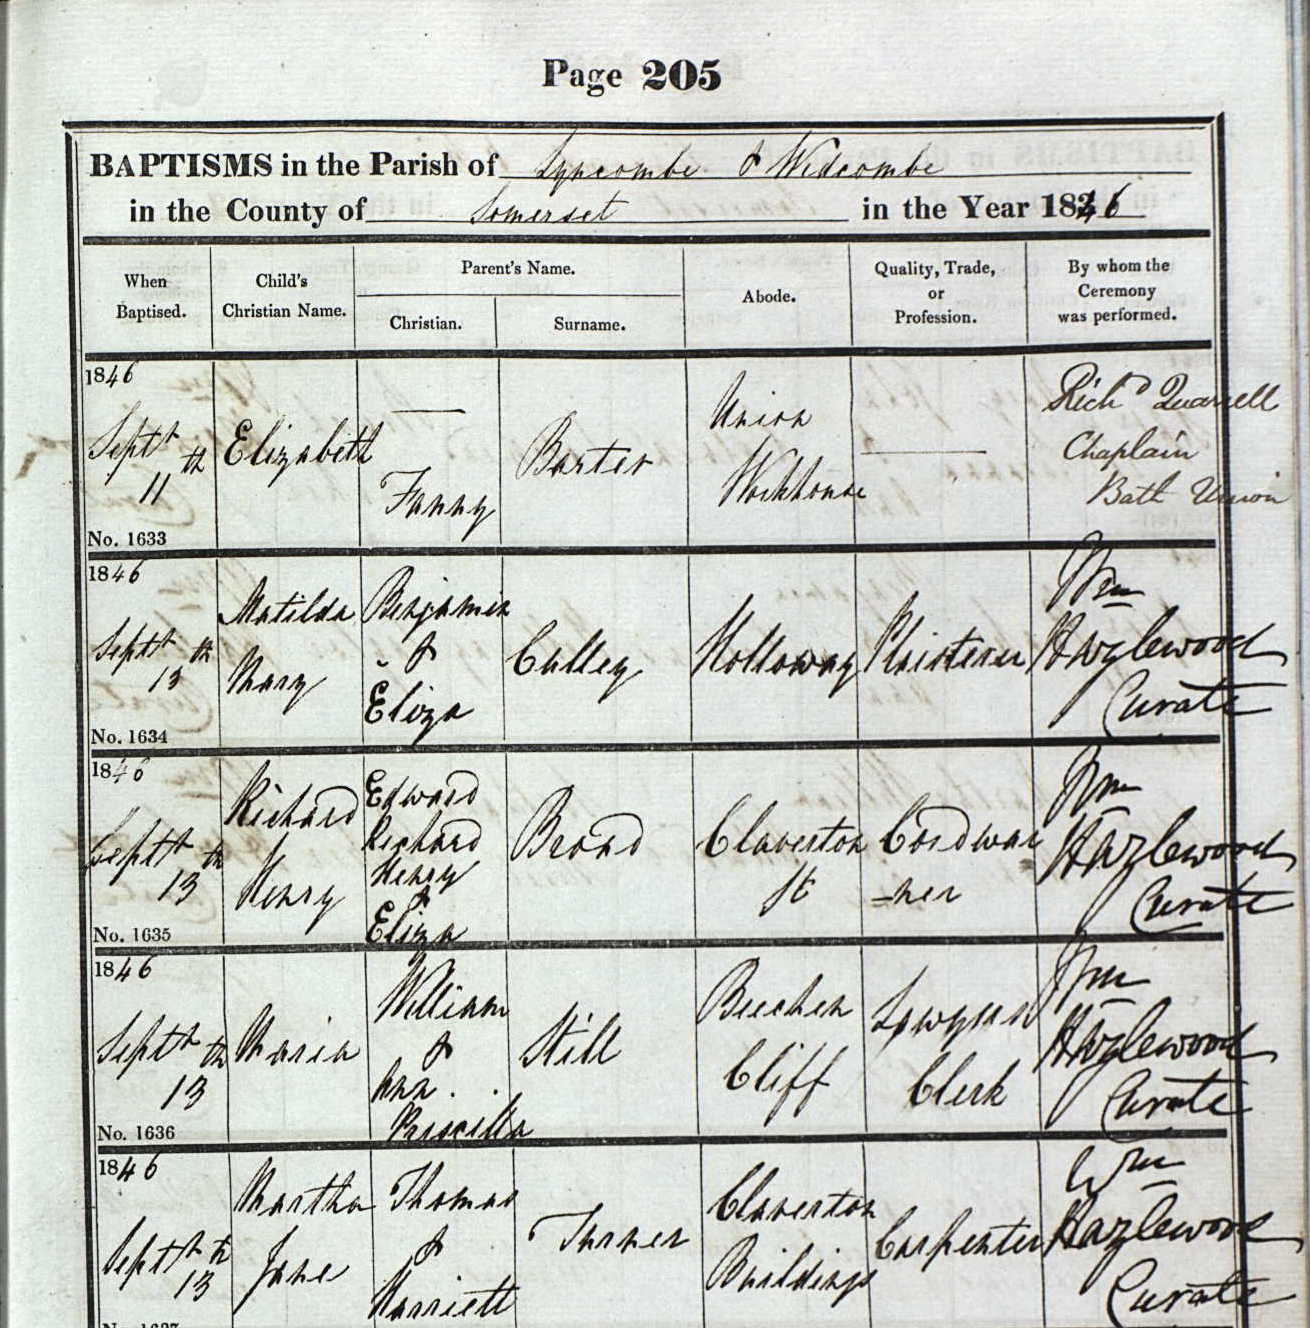 Page 205
BAPTISMS in the Parish of Lyncombe & Widcombe
in the County of Somerset in the Year 1846
When Baptised.
Child's Christian Name.
Parent's Name.
Christian.
Surname.
Abode.
Quality, Trade, or Profession.
By whom the Ceremony was performed.
1846
Septr 11th
No. 1633
Elizabeth
—
Fanny
Barter
Union
Workhouse
—
Richd Quarrell
Chaplain
Bath Union
1846
Septr 13th
No. 1634
Matilda
Mary
Benjamin
&
Eliza
Culley
Holloway
Plaisterer
Wm
Hazlewood
Curate
1846
Septr 13th
No. 1635
Richard
Henry
Edward
Richard
Henry
&
Eliza
Broad
Claverton
St
Cordwai
-ner
Wm
Hazlewood
Curate
1846
Septr 13th
No. 1636
Maria
William
&
Ann
Priscilla
Still
Beechen
Cliff
Lawyers
Clerk
Wm
Hazlewood
Curate
1846
Septr 13th
No. 1637
Martha
Jane
Thomas
&
Harriett
Turner
Claverton
Buildings
Carpenter
Wm
Hazlewood
Curate